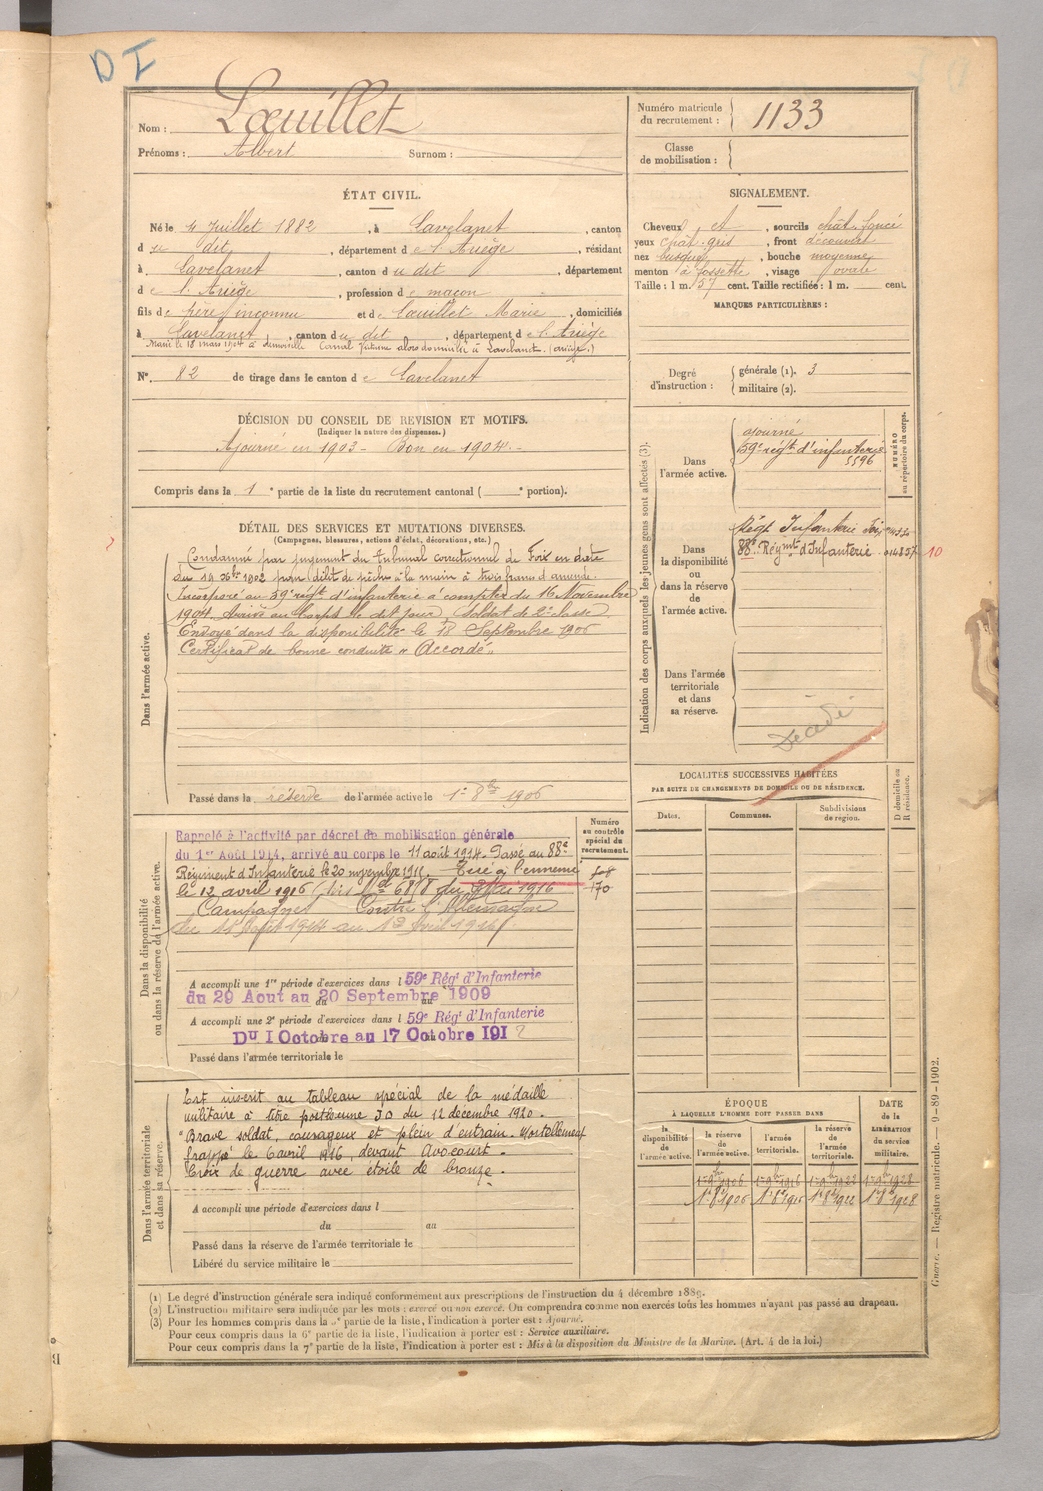 D I
Nom : Lœuillet
Prénoms : Albert Surnom :
Numéro matricule
du recrutement : 1133
Classe
de mobilisation :
ÉTAT CIVIL.
Né le 4 Juillet 1882, à Lavelanet, canton
du dit, département de l'Ariège, résidant
à Lavelanet, canton du dit, département
de l'Ariège, profession de maçon
fils de père inconnu et de Lœuillet Marie, domiciliés
à Lavelanet, canton du dit, département de l'Ariège
Marié le 18 mars 1904 à demoiselle Canal alors domiciliée à Lavelanet (Ariège.)
N°. 82 de tirage dans le canton de Lavelanet
SIGNALEMENT.
Cheveux et, sourcils chât. foncé
yeux chât. gris, front découvert
nez busqué, bouche moyenne
menton à fossette, visage ovale
Taille : 1 m. 57 cent. Taille rectifiée : 1 m. cent.
MARQUES PARTICULIÈRES :
Degré
d'instruction :
générale (1). 3
militaire (2).
DÉCISION DU CONSEIL DE REVISION ET MOTIFS.
(Indiquer la nature des dispenses.)
Ajourné en 1903 - Bon en 1904.-
Compris dans la 1e partie de la liste du recrutement cantonal ( e portion).
DÉTAIL DES SERVICES ET MUTATIONS DIVERSES.
(Campagnes, blessures, actions d'éclat, décorations, etc.)
Dans l'armée active.
Condamné par jugement du Tribunal correctionnel de Foix en date
du 10 Xbre 1902 pour délit de pêche à la main à trois francs d'amende.
Incorporé au 59e régt d'infanterie à compter du 16 Novembre
1904. Arrivé au Corps le dit jour, Soldat de 2e classe
Envoyé dans la disponibilité le 18 Septembre 1906
Certificat de bonne conduite « Accordé »
Passé dans la réserve de l'armée active le 1er 8bre 1906
Indication des corps auxquels les jeunes gens sont affectés (3).
NUMÉRO
au répertoire du corps.
Dans
l'armée active.
ajourné
59e régt d'infanterie
5596
Dans
la disponibilité
ou
dans la réserve
de
l'armée active.
Régt Infanterie Foix
88e Régimt d'Infanterie 014857 10
Dans l'armée
territoriale
et dans
sa réserve.
Décédé
LOCALITÉS SUCCESSIVES HABITÉES
PAR SUITE DE CHANGEMENTS DE DOMICILE OU DE RÉSIDENCE.
Dates.
Communes.
Subdivisions
de région.
D domicile ou
R résidence.
Dans la disponibilité
ou dans la réserve de l'armée active.
Numéro
au contrôle
spécial du
recrutement.
Rappelé à l'activité par décret de mobilisation générale
du 1er Août 1914, arrivé au corps le 11 août 1914. Passé au 88e
Régiment d'Infanterie le 20 novembre 1914. Tué à l'ennemi
le 12 avril 1916 du 3 Mai 1916
Campagnes Contre l'Allemagne
du 11 Août 1914 au 12 avril 1916
170
A accompli une 1re période d'exercices dans l 59e Régt d'Infanterie
du 29 Aout au 20 Septembre 1909
A accompli une 2e période d'exercices dans l 59e Régt d'Infanterie
Du 1 Octobre au 17 Octobre 1912
Passé dans l'armée territoriale le
Dans l'armée territoriale
et dans sa réserve.
Est inscrit au tableau spécial de la médaille
militaire à titre posthume JO du 12 décembre 1920.
"Brave soldat, courageux et plein d'entrain. Mortellement
frappé le 6 avril 1916, devant Avocourt.
Croix de guerre avec étoile de bronze.
A accompli une période d'exercices dans l
du au
Passé dans la réserve de l'armée territoriale le
Libéré du service militaire le
ÉPOQUE
À LAQUELLE L'HOMME DOIT PASSER DANS
la
disponibilité
de
l'armée active.
la réserve
de
l'armée active.
l'armée
territoriale.
la réserve
de
l'armée
territoriale.
DATE
de la
LIBÉRATION
du service
militaire.
1er 9bre 1906 1er 9bre 1916 1er 9bre 1922 1er 9bre 1928
1er 8bre 1906 1er 8bre 1916 1er 8bre 1922 1er 8bre 1928
(1) Le degré d'instruction générale sera indiqué conformément aux prescriptions de l'instruction du 4 décembre 1889.
(2) L'instruction militaire sera indiquée par les mots : exercé ou non exercé. On comprendra comme non exercés tous les hommes n'ayant pas passé au drapeau.
(3) Pour les hommes compris dans la 5e partie de la liste, l'indication à porter est : Ajourné.
Pour ceux compris dans la 6e partie de la liste, l'indication à porter est : Service auxiliaire.
Pour ceux compris dans la 7e partie de la liste, l'indication à porter est : Mis à la disposition du Ministre de la Marine. (Art. 4 de la loi.)
Guerre. — Registre matricule. — 9-89-1902.